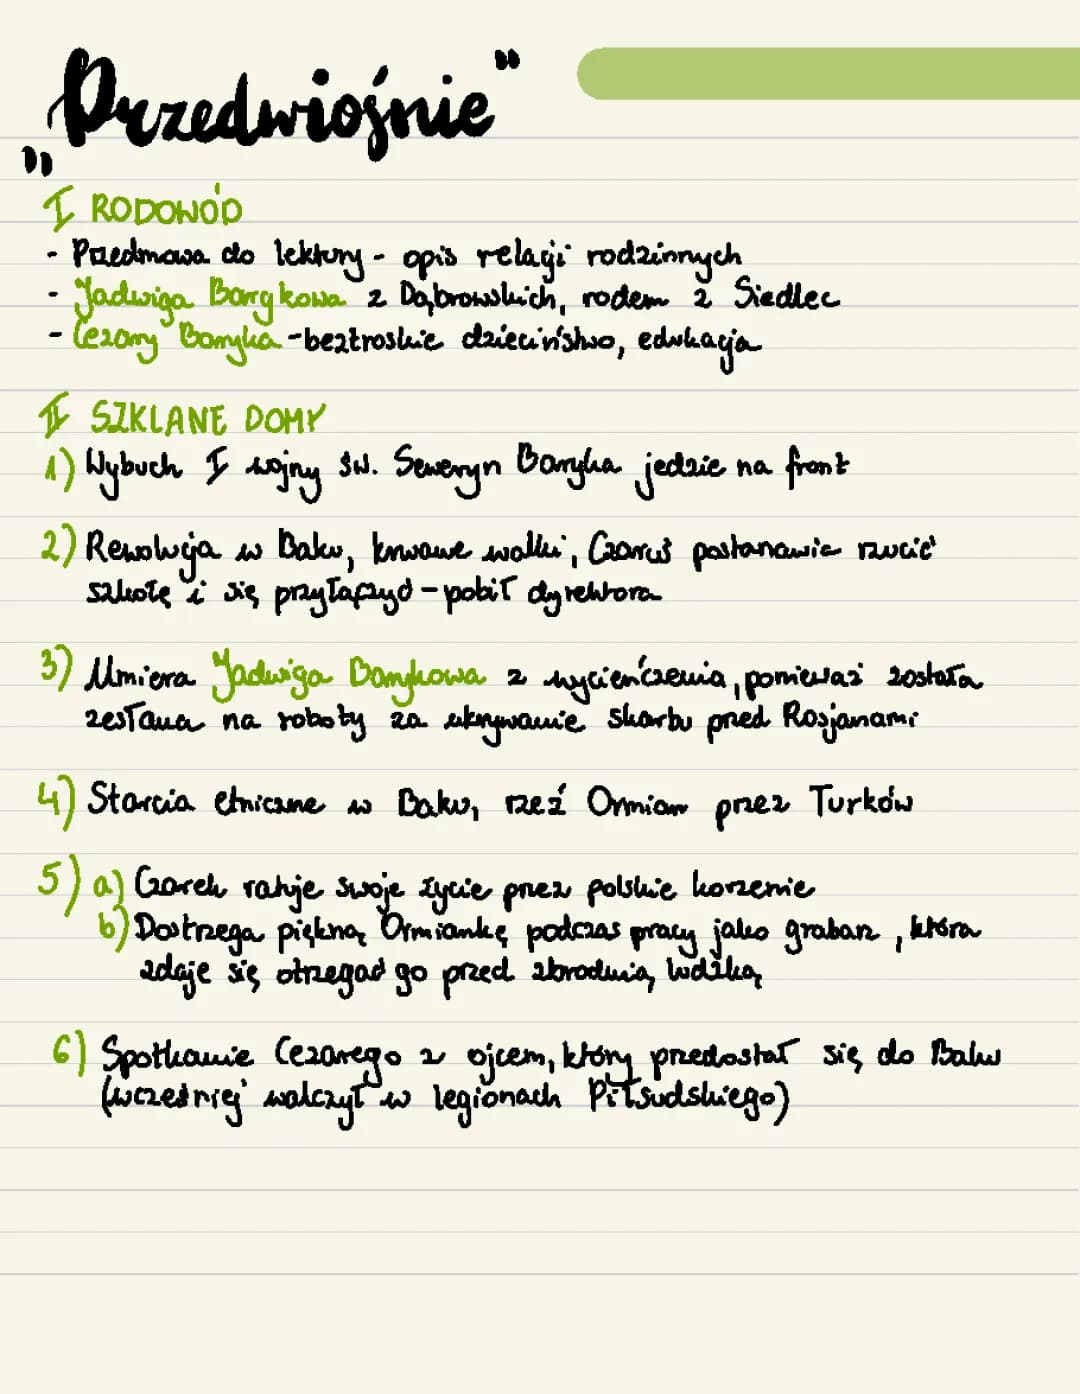 „Przedwiośnie"
I RODOWÓD
- Przedmowa do lektury - opis relacji rodzinnych
- Jadwiga Barykowa z Dąbrowskich, rodem z Siedlec
- Cezary Baryka - beztroskie dzieciństwo, edukacja
II SZKLANE DOMY
1) Wybuch I wojny św. Seweryn Baryka jedzie na front
2) Rewolucja w Baku, krwawe walki, Czaruś postanawia rzucić
szkołę i się przyłączyć - pobił dyrektora
3) Umiera Jadwiga Barykowa z wycieńczenia, ponieważ została
zesłana na roboty za ukrywanie skarbu przed Rosjanami
4) Starcia etniczne w Baku, rzeź Ormian przez Turków
5) a) Czarek ratuje swoje życie przez polskie korzenie
b) Dostrzega piękną Ormiankę podczas pracy jako grabarz, która
zdaje się ostrzegać go przed zbrodnią ludzką
6) Spotkanie Cezarego z ojcem, który przedostał się do Baku
(wcześniej walczył w legionach Piłsudskiego)